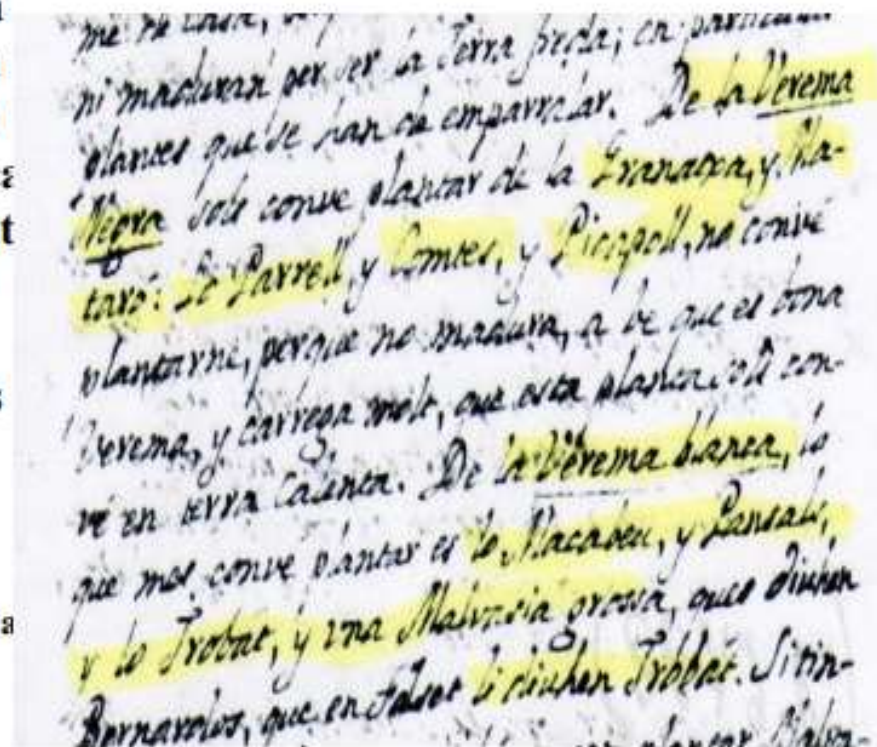 me ca casa,
ni maduran per ser la Terra freda; en particular
plantes que se han de emparralar. De la Verema
Negra sols conve plantar de la Granatxa, y Ma-
taró: Lo Parrell, y Comtes, y Picapoll, no convé
plantarne, perque no madura, a be que es bona
Verema, y carrega molt, que esta planta sols con-
vé en terra calenta. De la Verema blanca, lo
que mes conve plantar es lo Macabeu, y Pansals,
y lo Trobat, y una Malvasia grossa, ques diuhen
Bernardos, que en Falset li diuhen Trobat. Si tin-
plantar Malva-